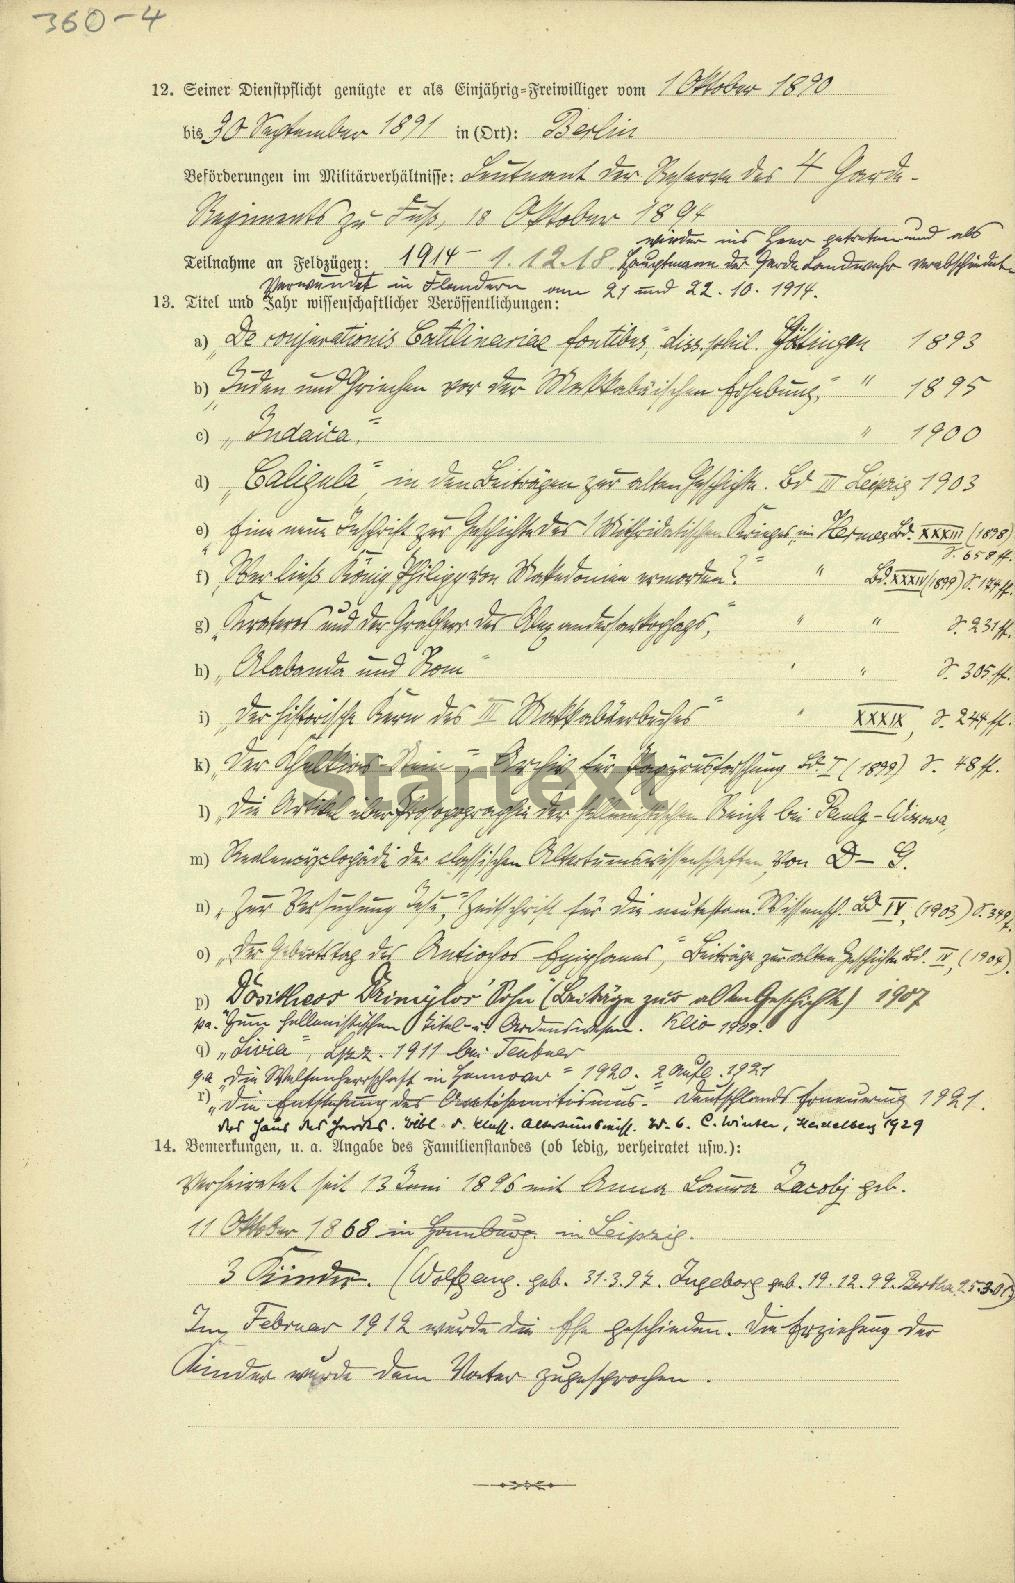 360-4
12. Seiner Dienstpflicht genügte er als Einjährig-Freiwilliger vom 1 Oktober 1890
bis 30 September 1891 in (Ort): Berlin
Beförderungen im Militärverhältnisse: Leutnant der Reserve des 4 Garde-
Regiments zu Fuß, 18 Oktober 1894
wieder ins Heer getreten und als
Teilnahme an Feldzügen: 1914 - 1.12.18. Hauptmann der Garde Landwehr verabschiedet.
Verwundet in Flandern am 21 und 22.10.1914.
13. Titel und Jahr wissenschaftlicher Veröffentlichungen:
a) „De conjurationis Catilinariae fontibus," diss. phil. Göttingen 1893
b) „Juden und Griechen vor der Makkabäischen Erhebung," " 1895
c) „Judaica," " 1900
d) „Caligula", in den Beiträgen zur alten Geschichte. Bd III Leipzig 1903
e) „Eine neue Inschrift zur Geschichte des 1 Mithridatischen Krieges, in Hermes Bd. XXXIII (1898)
S. 658 ff.
f) „Wer ließ König Philipp von Makedonien ermorden?" " Bd. XXXIV (1899) S.
g) „Krateros und der Grabherr des Alexandersarkophags," " " S. 231 ff.
h) „Alabanda und Rom" " " S. 305 ff.
i) „Der historische Kern des III Makkabäerbuches" " XXXIX, S. 244 ff.
k) „Der Chalkiosstein", Archiv für Papyrusforschung Bd. I (1899) S. 48 ff.
Startext
l) „Die Artikel über Prosopographie der hellenistischen Reiche bei Pauly-Wissowa,
m) Realencyclopädie der classischen Altertumswissenschaften, von D - G.
n) „Zur Versuchung Jesu," Zeitschrift für die neutestam. Wissensch. Bd IV, (1903) S. 349f.
o) „Der Geburtstag des Antiochos Epiphanes," Beiträge zur alten Geschichte Bd. IV, (1904).
p) Dositheos Drimylos' Sohn (Beiträge zur alten Geschichte) 1907
pa. „Zum hellenistischen Titel- u. Ordenswesen. Klio 1909.
q) „Livia", Lpz. 1911 bei Teubner
qa „Die Welfenherrschaft in Hannover" 1920. 2 Aufl. 1921
r) „Die Entstehung des Antisemitismus." Deutschlands Erneuerung 1921.
Das Haus des Herodes. Bibl. d. klass. Altertumswiss. C. Winter, Heidelberg 1929
14. Bemerkungen, u. a. Angabe des Familienstandes (ob ledig, verheiratet usw.):
Verheiratet seit 13 Juni 1896 mit Anna Laura Jacobj geb.
11 Oktober 1868 in Hamburg. in Leipzig.
3 Kinder. (Wolfgang. geb. 31.3.97. Ingeborg geb. 19.12.99. Bertha 25.3.01)
Im Februar 1912 wurde die Ehe geschieden. Die Erziehung der
Kinder wurde dem Vater zugesprochen.